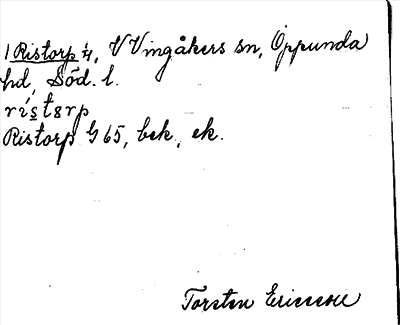 1 Ristorp 4, V Vingåkers sn, Oppunda
hd, Söd. l.
ristɔrp
Ristorp G 65, bek, ek.
Torsten Ericsson